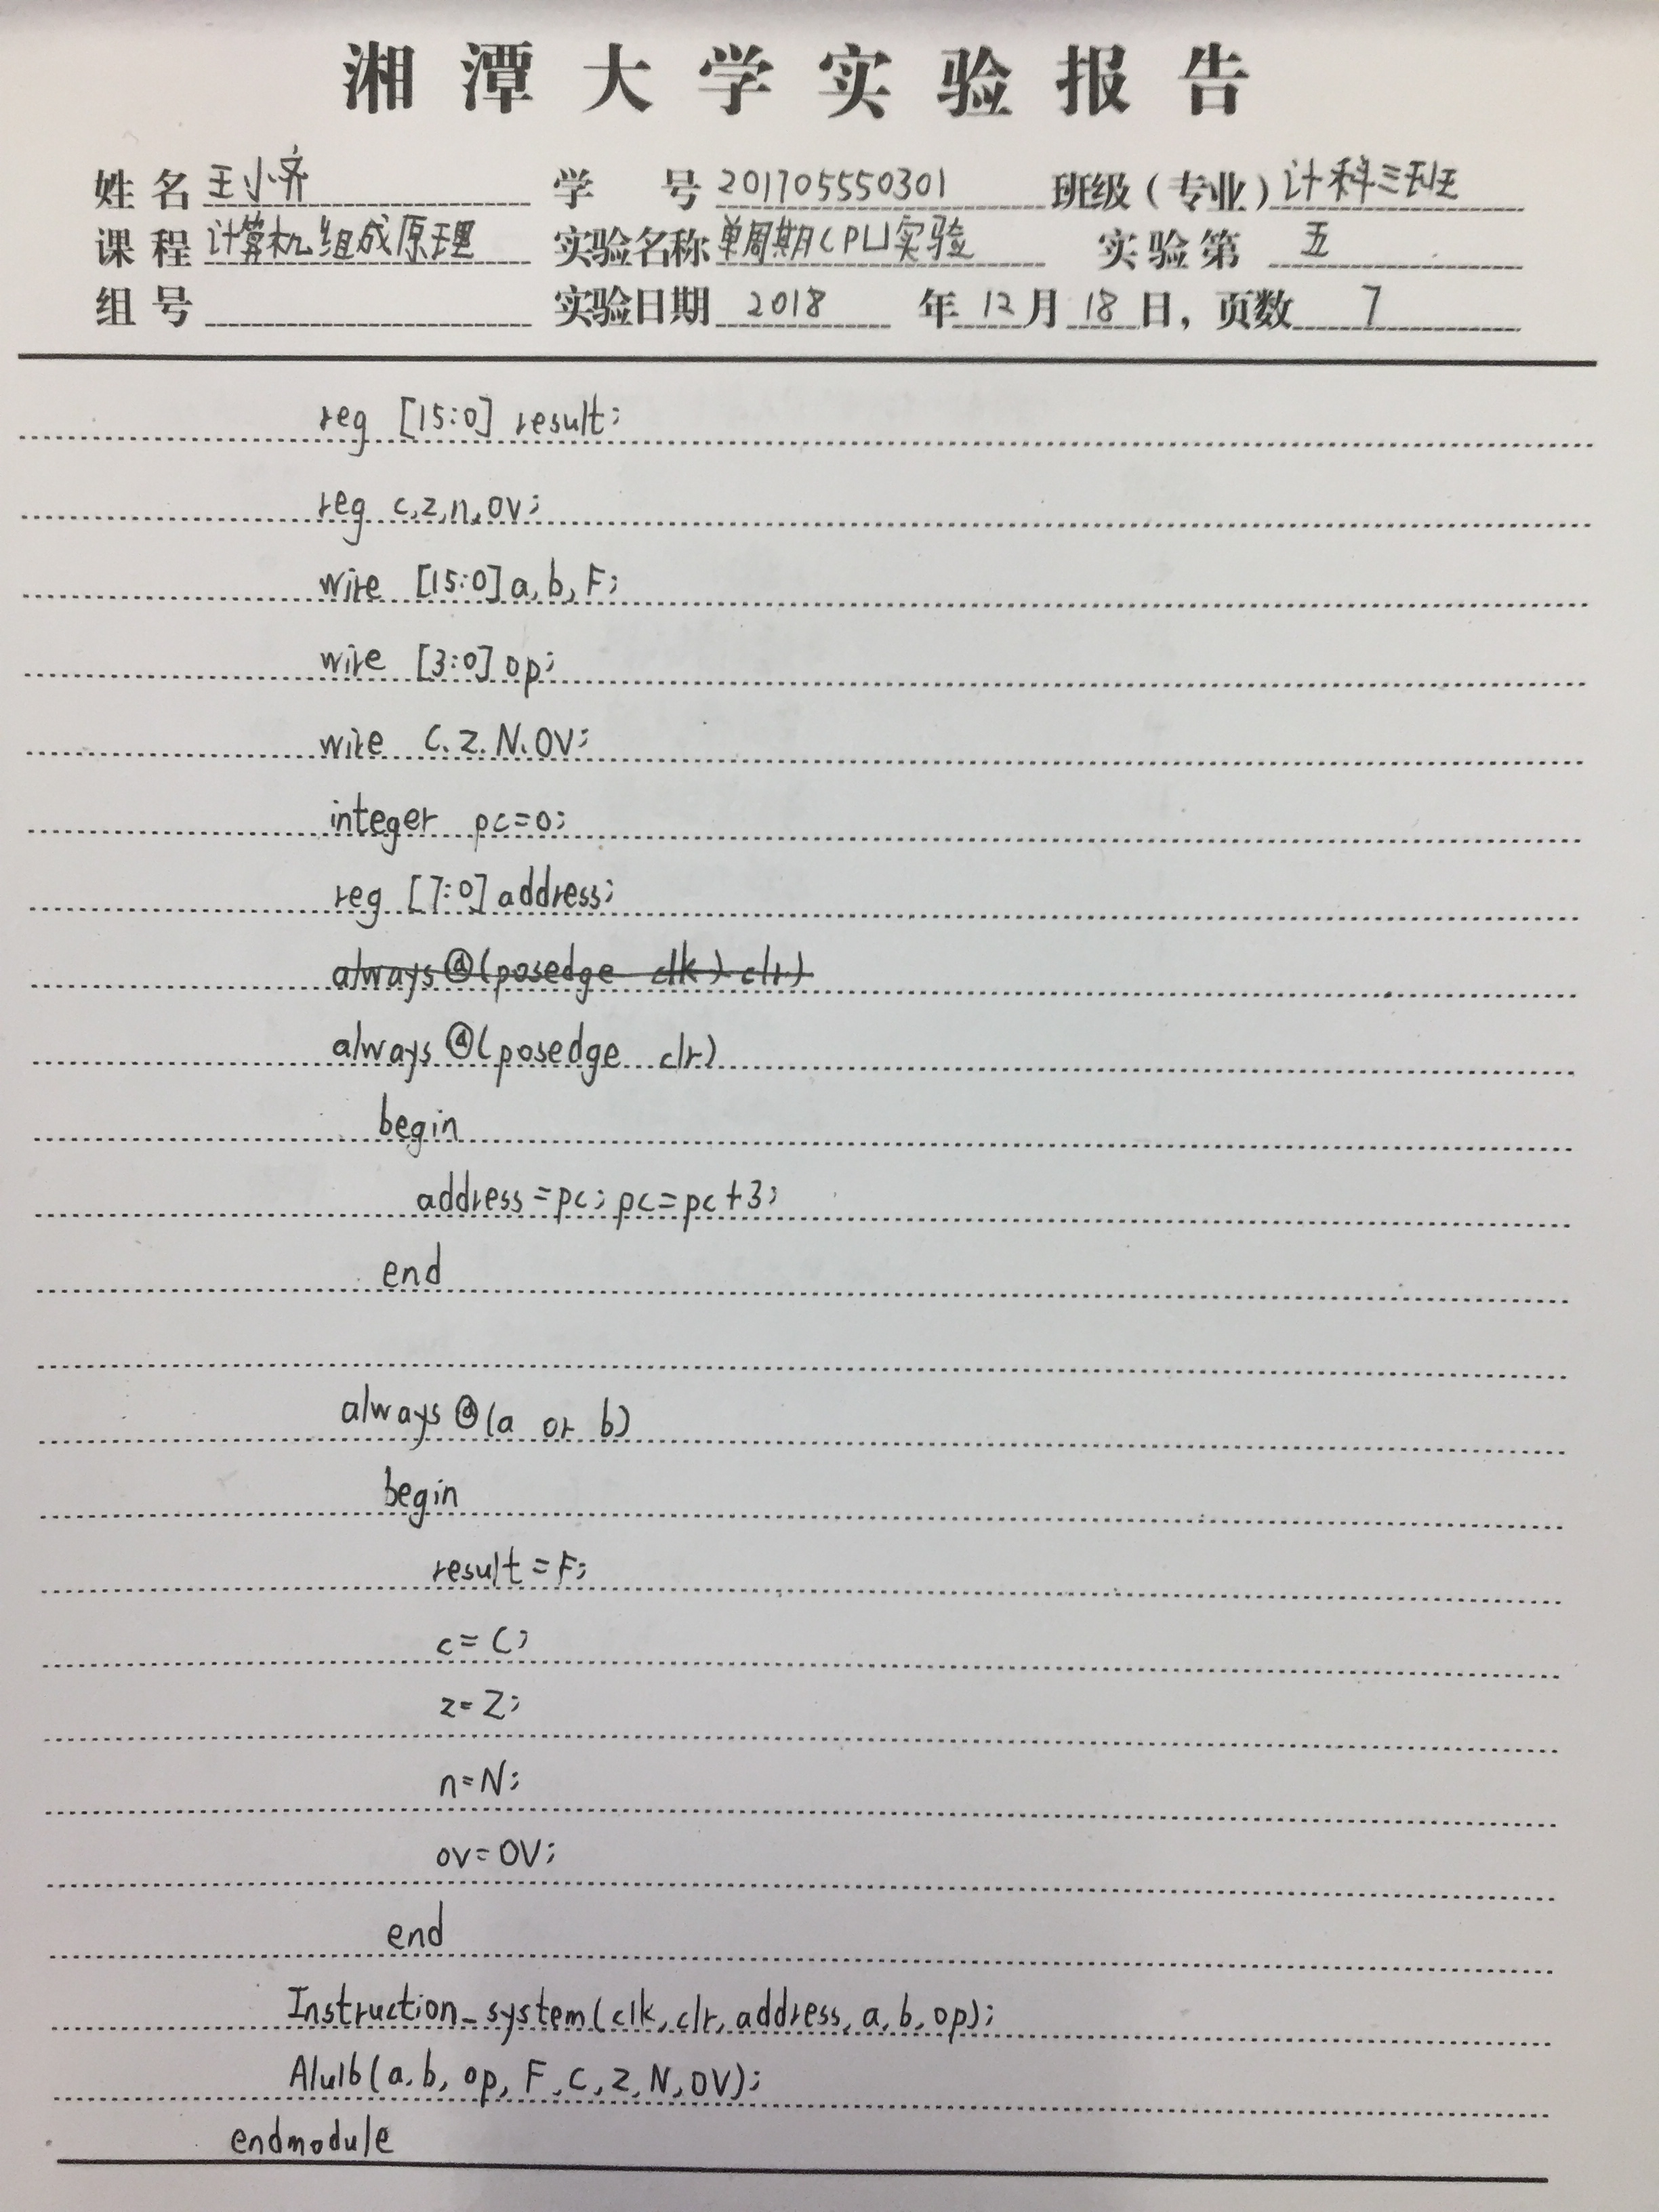 湘潭大学实验报告
姓名 王小齐 学号 201705550301 班级（专业）计科三班
课程 计算机组成原理 实验名称 单周期CPU实验 实验第 五
组号 实验日期 2018 年 12 月 18 日，页数 7
reg [15:0] result;
reg c,z,n,ov;
wire [15:0] a,b,F;
wire [3:0] op;
wire C,Z,N,OV;
integer pc=0;
reg [7:0] address;
always @(posedge clk) clr)
always @(posedge clr)
begin
address=pc; pc=pc+3;
end
always @(a or b)
begin
result=F;
c=C;
z=Z;
n=N;
ov=OV;
end
Instruction_system(clk,clr,address,a,b,op);
Alulb(a,b,op,F,C,Z,N,OV);
endmodule